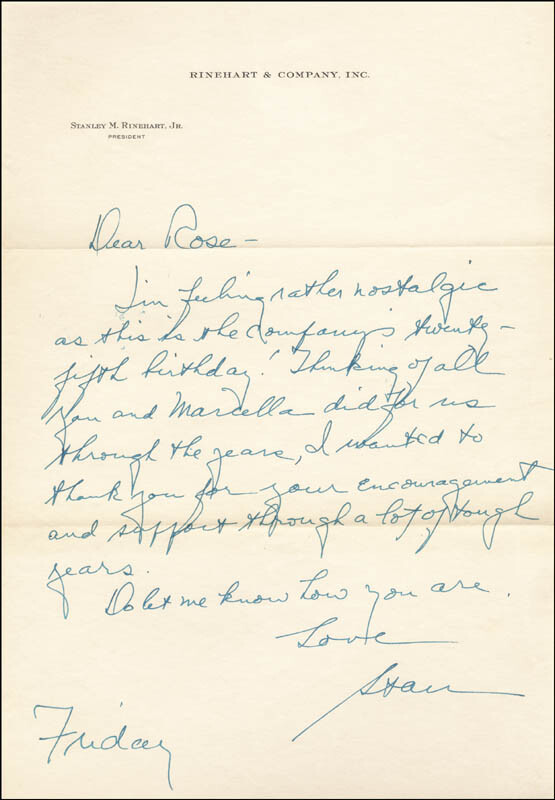 RINEHART & COMPANY, INC.
STANLEY M. RINEHART, JR.
PRESIDENT
Dear Rose –
I'm feeling rather nostalgic
as this is the company's twenty-
fifth birthday! Thinking of all
you and Marcella did for us
through the years, I wanted to
thank you for your encouragement
and support through a lot of tough
years.
Do let me know how you are.
Love
Stan
Friday